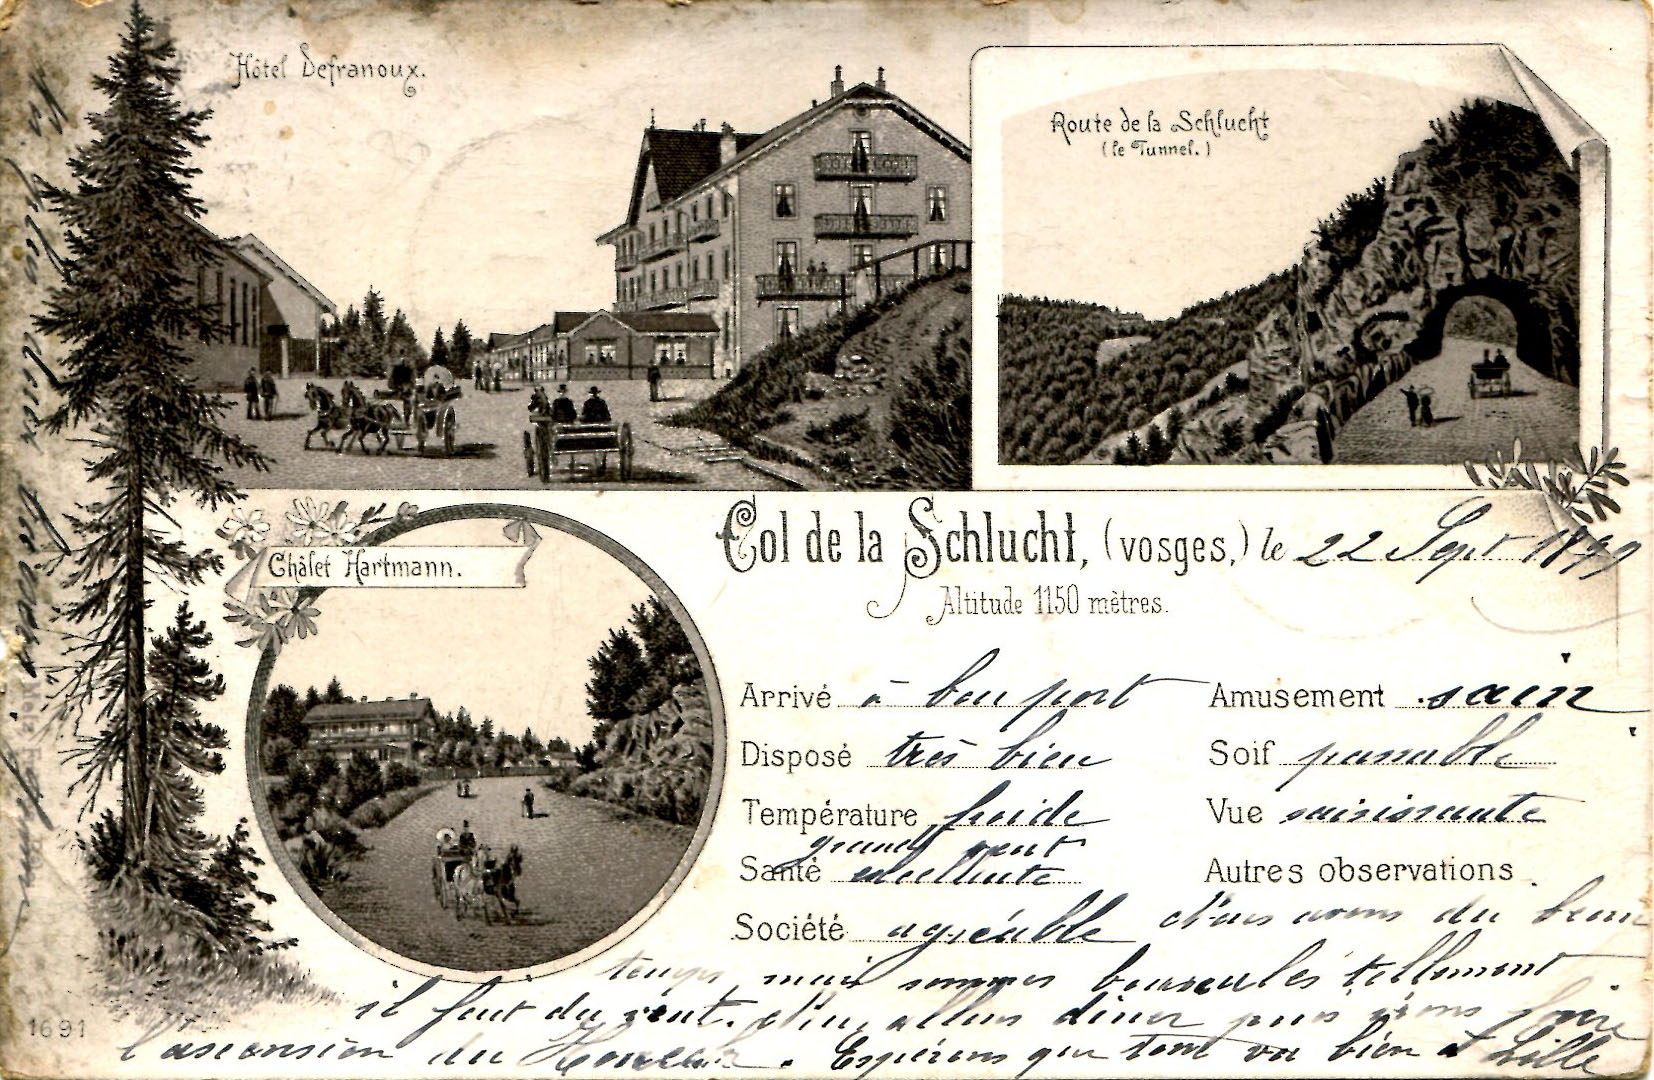 Hôtel Defranoux.
Route de la Schlucht
(le Tunnel.)
Châlet Hartmann.
Col de la Schlucht, (vosges,) le 22 Sept 1899
Altitude 1150 mètres.
Arrivé à bon port
Disposé très bien
Température froide
grand vent
Santé excellente
Société agréable
Amusement sain
Soif passable
Vue saisissante
Autres observations
Nous avons du beau
temps, mais sommes bousculés tellement
il fait du vent. allons diner puis irons faire
l'ascension du Honeck. Espérons que tout va bien à Lille
1691